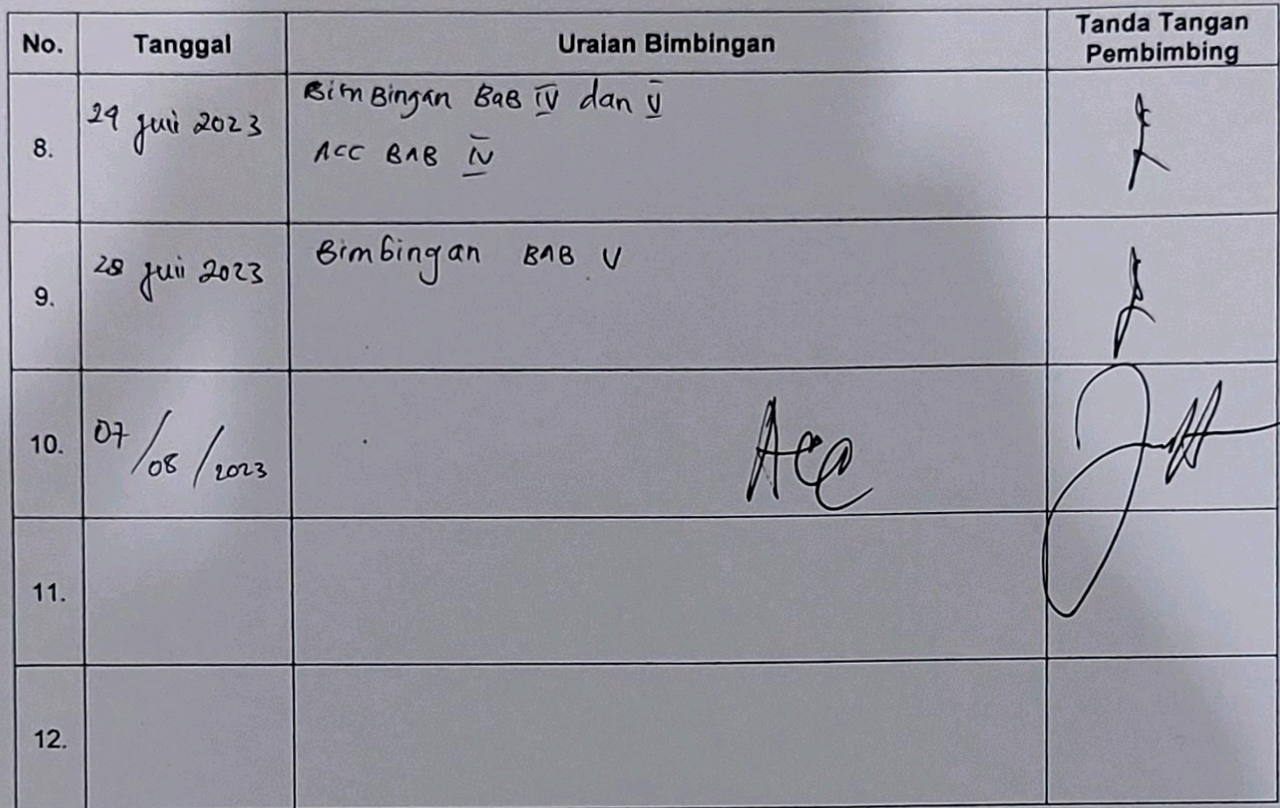 No. Tanggal Uraian Bimbingan Tanda Tangan
Pembimbing
8. 24 Juli 2023 Bimbingan BAB IV dan V
ACC BAB IV
9. 28 Juli 2023 Bimbingan BAB V
10. 07/08/2023 Acc
11.
12.